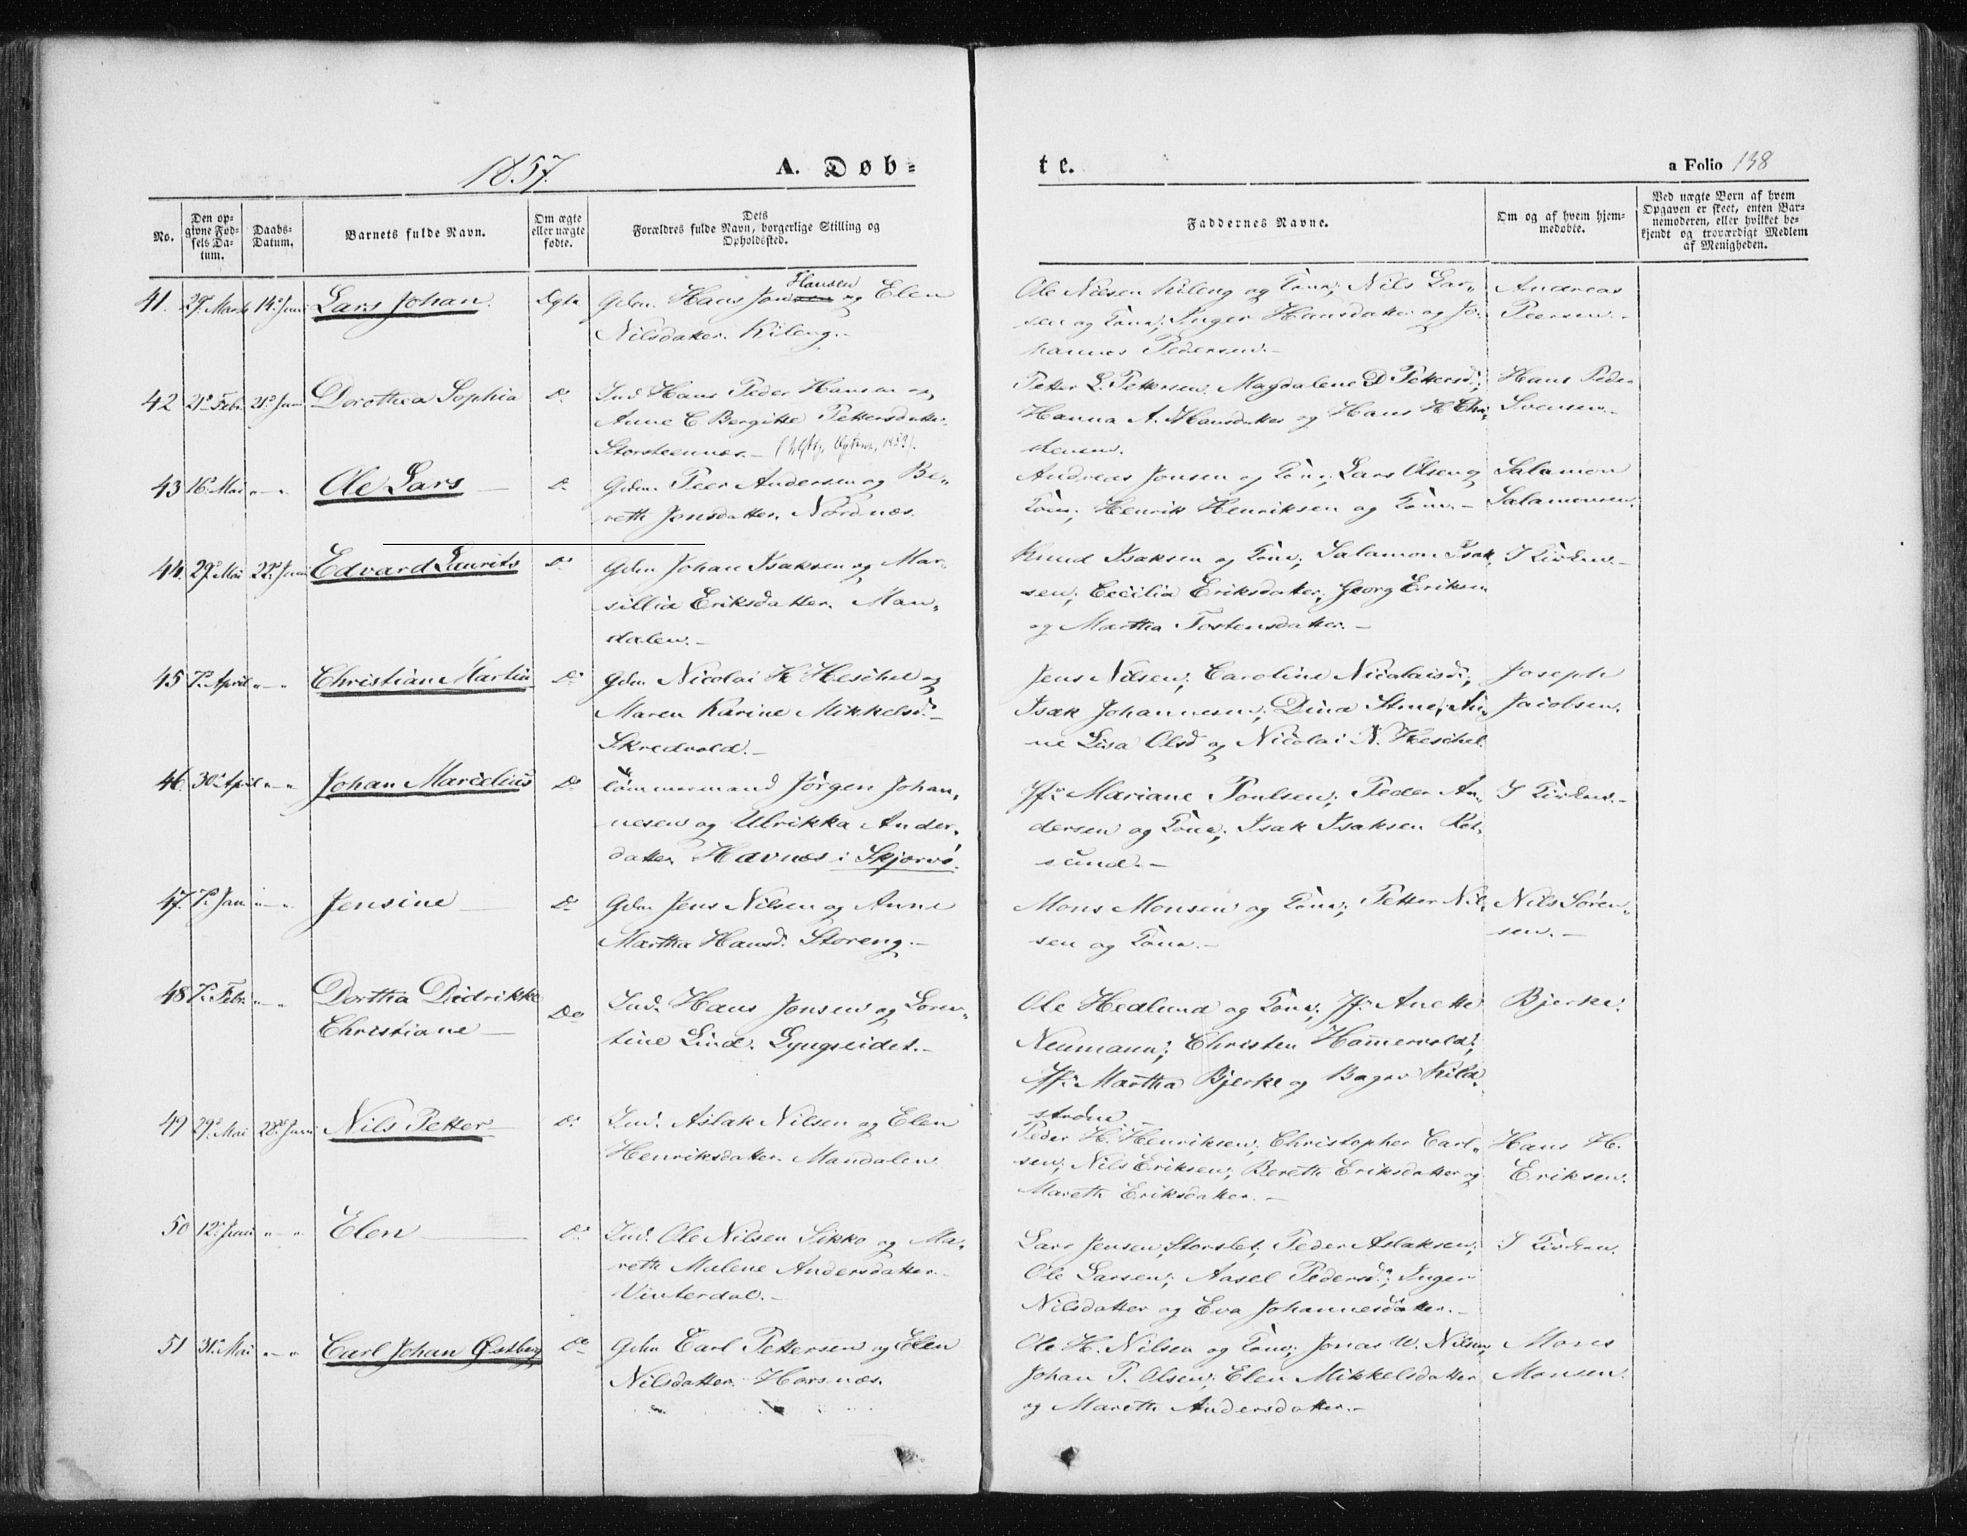 1857.
A. Døb=
te.
a Folio 138
No.
Den op-
givne Fød-
sels Da-
tum.
Daabs-
Datum.
Barnets fulde Navn.
Om ægte
eller uægte
fødte.
Dets
Forældres fulde Navn, borgerlige Stilling og
Opholdssted.
Faddernes Navne.
Om og af hvem hjem-
medøbte.
Ved uægte Børn af hvem
Opgaven er skeet, enten Bar-
nemoderen, eller hvilket be-
kjendt og troværdigt Medlem
af Menigheden.
41. 29. Marts 14. Juni Lars Johan. Ægte Gdm. Hans Hansen og Elen
Nilsdatter. Kileng.-
Ole Nilsen Kileng og Kone; Nils Lar-
sen og Kone; Inger Hansdatter og Jo-
hannes Pedersen.-
Andreas
Peersen.-
42 21. Febr. 21. Juni Dorothea Sophia Do Ind. Hans Peder Hansen og
Anne C Bergitte Pettersdatter.
Storsteennæs.-
Petter L. Pettersen; Magdalene D Pettersd.;
Hanna A. Hansdatter og Hans H Chri-
stensen.
Hans Peder
Svensen.-
43 16. Mai " - " Ole Lars - Do Gdm. Peer Andersen og Be-
reth Jensdatter. Nordnæs.
Andreas Jonsen og Kone; Lars Olsen og
Kone; Henrik Henriksen og Kone.-
Salamon
Salamonsen.
44. 29. Mai 22. Juni Edvard Laurits Do Gdm Johan Isaksen og Mar-
sillia Eriksdatter. Man-
dalen.-
Knud Isaksen og Kone; Salamon Isak-
sen; Cecilia Eriksdatter; Georg Eriksen
og Martha Tostensdatter.-
I Kirken.-
45 7. April " - " Christian Martin Do Gdm Nicolai H Heschel og
Maren Karine Mikkelsd.-
Skredvold.-
Jens Nilsen; Caroline Nicolaisd.;
Isak Johannesen; Dina Stme; An-
ne Lisa Olsd og Nicolai N. Heschel.
Joseph
Jacobsen.
46 30. April " - " Johan Marcelius Do Tømmermand Jørgen Johan-
nesen og Ulrikka Anders-
datter Havnæs i Skjervø.
Jfr. Mariane Poulsen; Peder An-
dersen og Kone; Isak Isaksen Rot-
sund.-
I Kirken.-
47. 7. Jan " - " Jensine - Do Gdm Jens Nilsen og Anne
Martha Hansd. Storeng.-
Mons Monsen og Kone; Petter Nil-
sen og Kone.-
Nils Søren-
sen.-
48 7. Febr. " - " Dorthea Didrikke
Christiane - Do Ind. Hans Jonsen og Loren-
tine Lind. Lyngseidet.-
Ole Hedlund og Kone; Jfr. Anette
Neumann; Christen Hammervold;
Jfr. Martha Bjerke og Bager Kild-
strøm.-
Bjerke.
49 29. Mai 28. Juni Nils Petter Do Ind. Aslak Nilsen og Elen
Henriksdatter. Mandalen.
Peder H. Henriksen; Christopher Carl-
sen; Nils Eriksen; Bereth Eriksdatter og
Mareth Eriksdatter.-
Hans H.
Eriksen.
50 12. Juni " - " Elen - Do Ind. Ole Nilsen Sikko og Ma-
reth Malene Andersdatter.
Vinterdal.-
Lars Jensen, Storslet; Peder Aslaksen;
Ole Larsen; Aasel Pedersd.; Inger
Nilsdatter og Eva Johannesdatter.-
I Kirken.
51 31. Mai " - " Carl Johan Østberg Do Gdm Carl Pettersen og Elen
Nilsdatter. Horsnæs.
Ole H. Nilsen og Kone; Jonas U. Nilsen;
Johan P. Olsen; Elen Mikkelsdatter
og Mareth Andersdatter.-
Mons
Monsen.